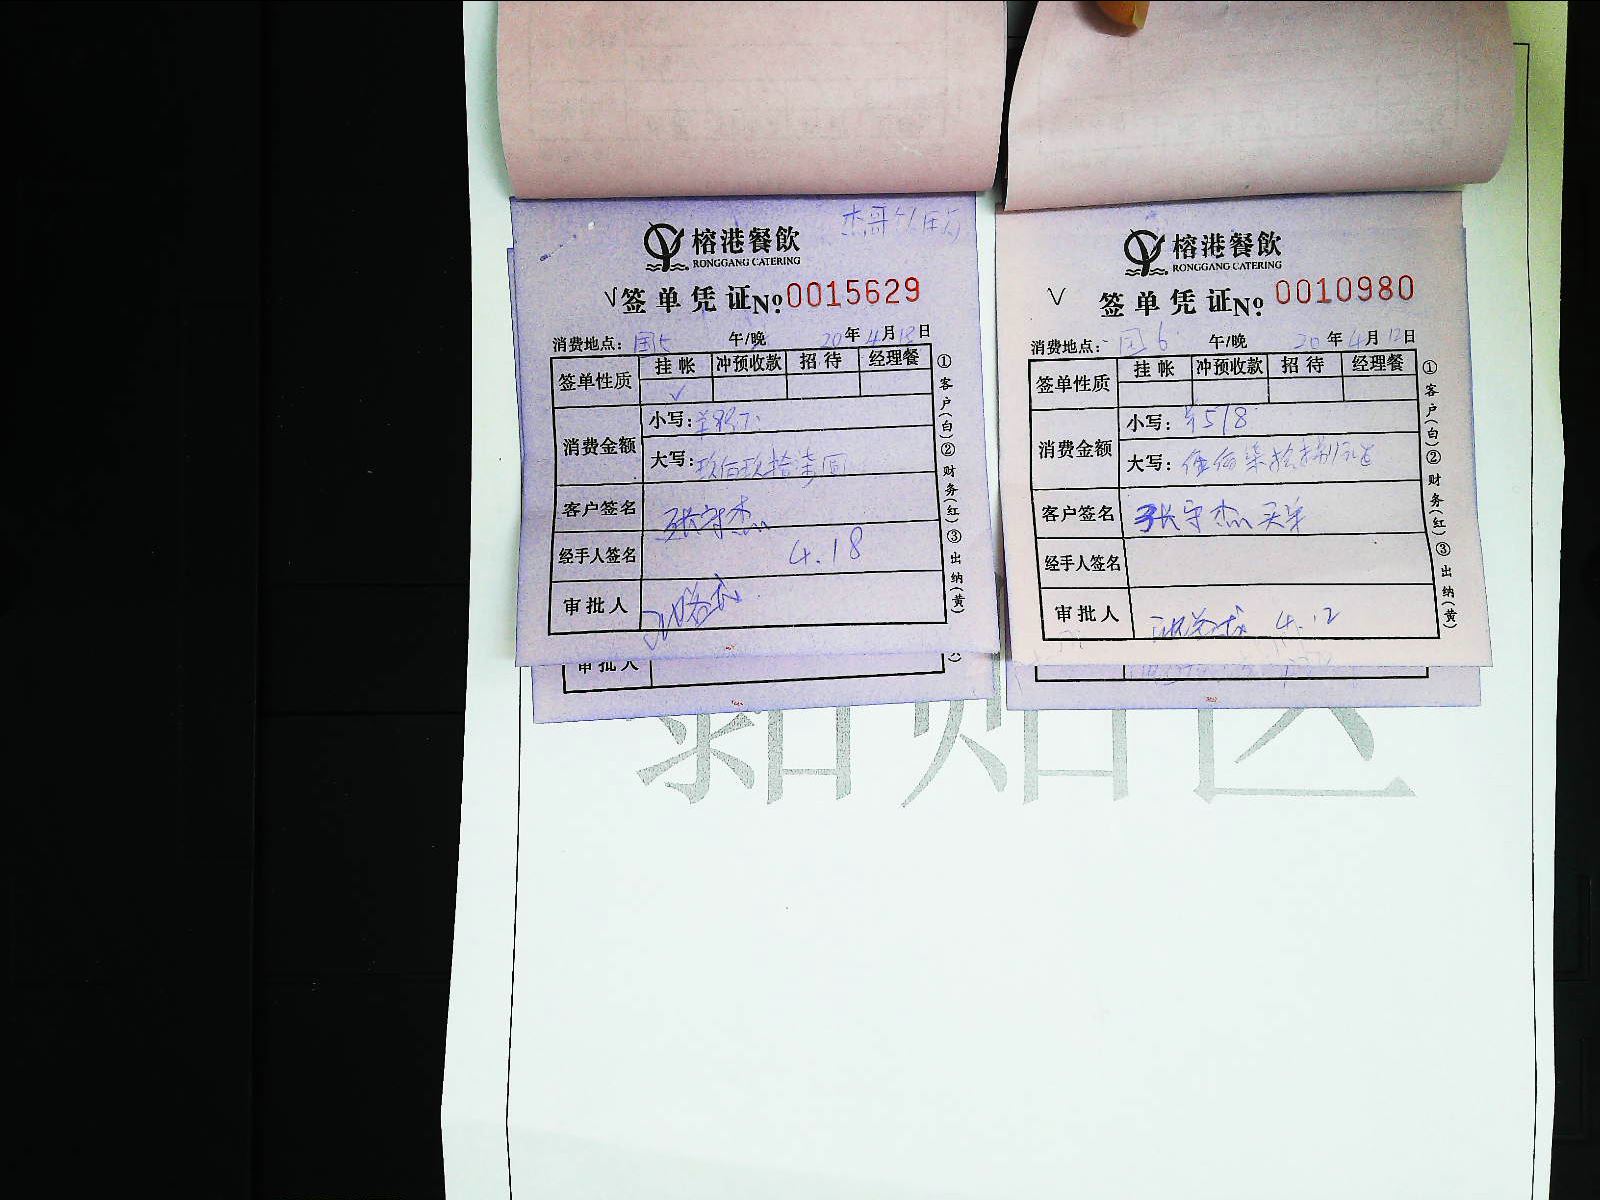 榕港餐飲
RONGGANG CATERING
√签单凭证№0015629
消费地点: 午/晚 20年4月18日
签单性质 挂帐 冲预收款 招待 经理餐
√
消费金额 小写:
大写: 玖佰玖拾柒圆
客户签名 张守杰
经手人签名 4.18
审批人
①客户(白)②财务(红)③出纳(黄)
审批人
榕港餐飲
RONGGANG CATERING
√ 签单凭证№0010980
消费地点: 午/晚 20年4月12日
签单性质 挂帐 冲预收款 招待 经理餐
消费金额 小写: ¥578
大写: 伍佰柒拾捌元
客户签名 张守杰
经手人签名
审批人 4.12
①客户(白)②财务(红)③出纳(黄)
粘贴区